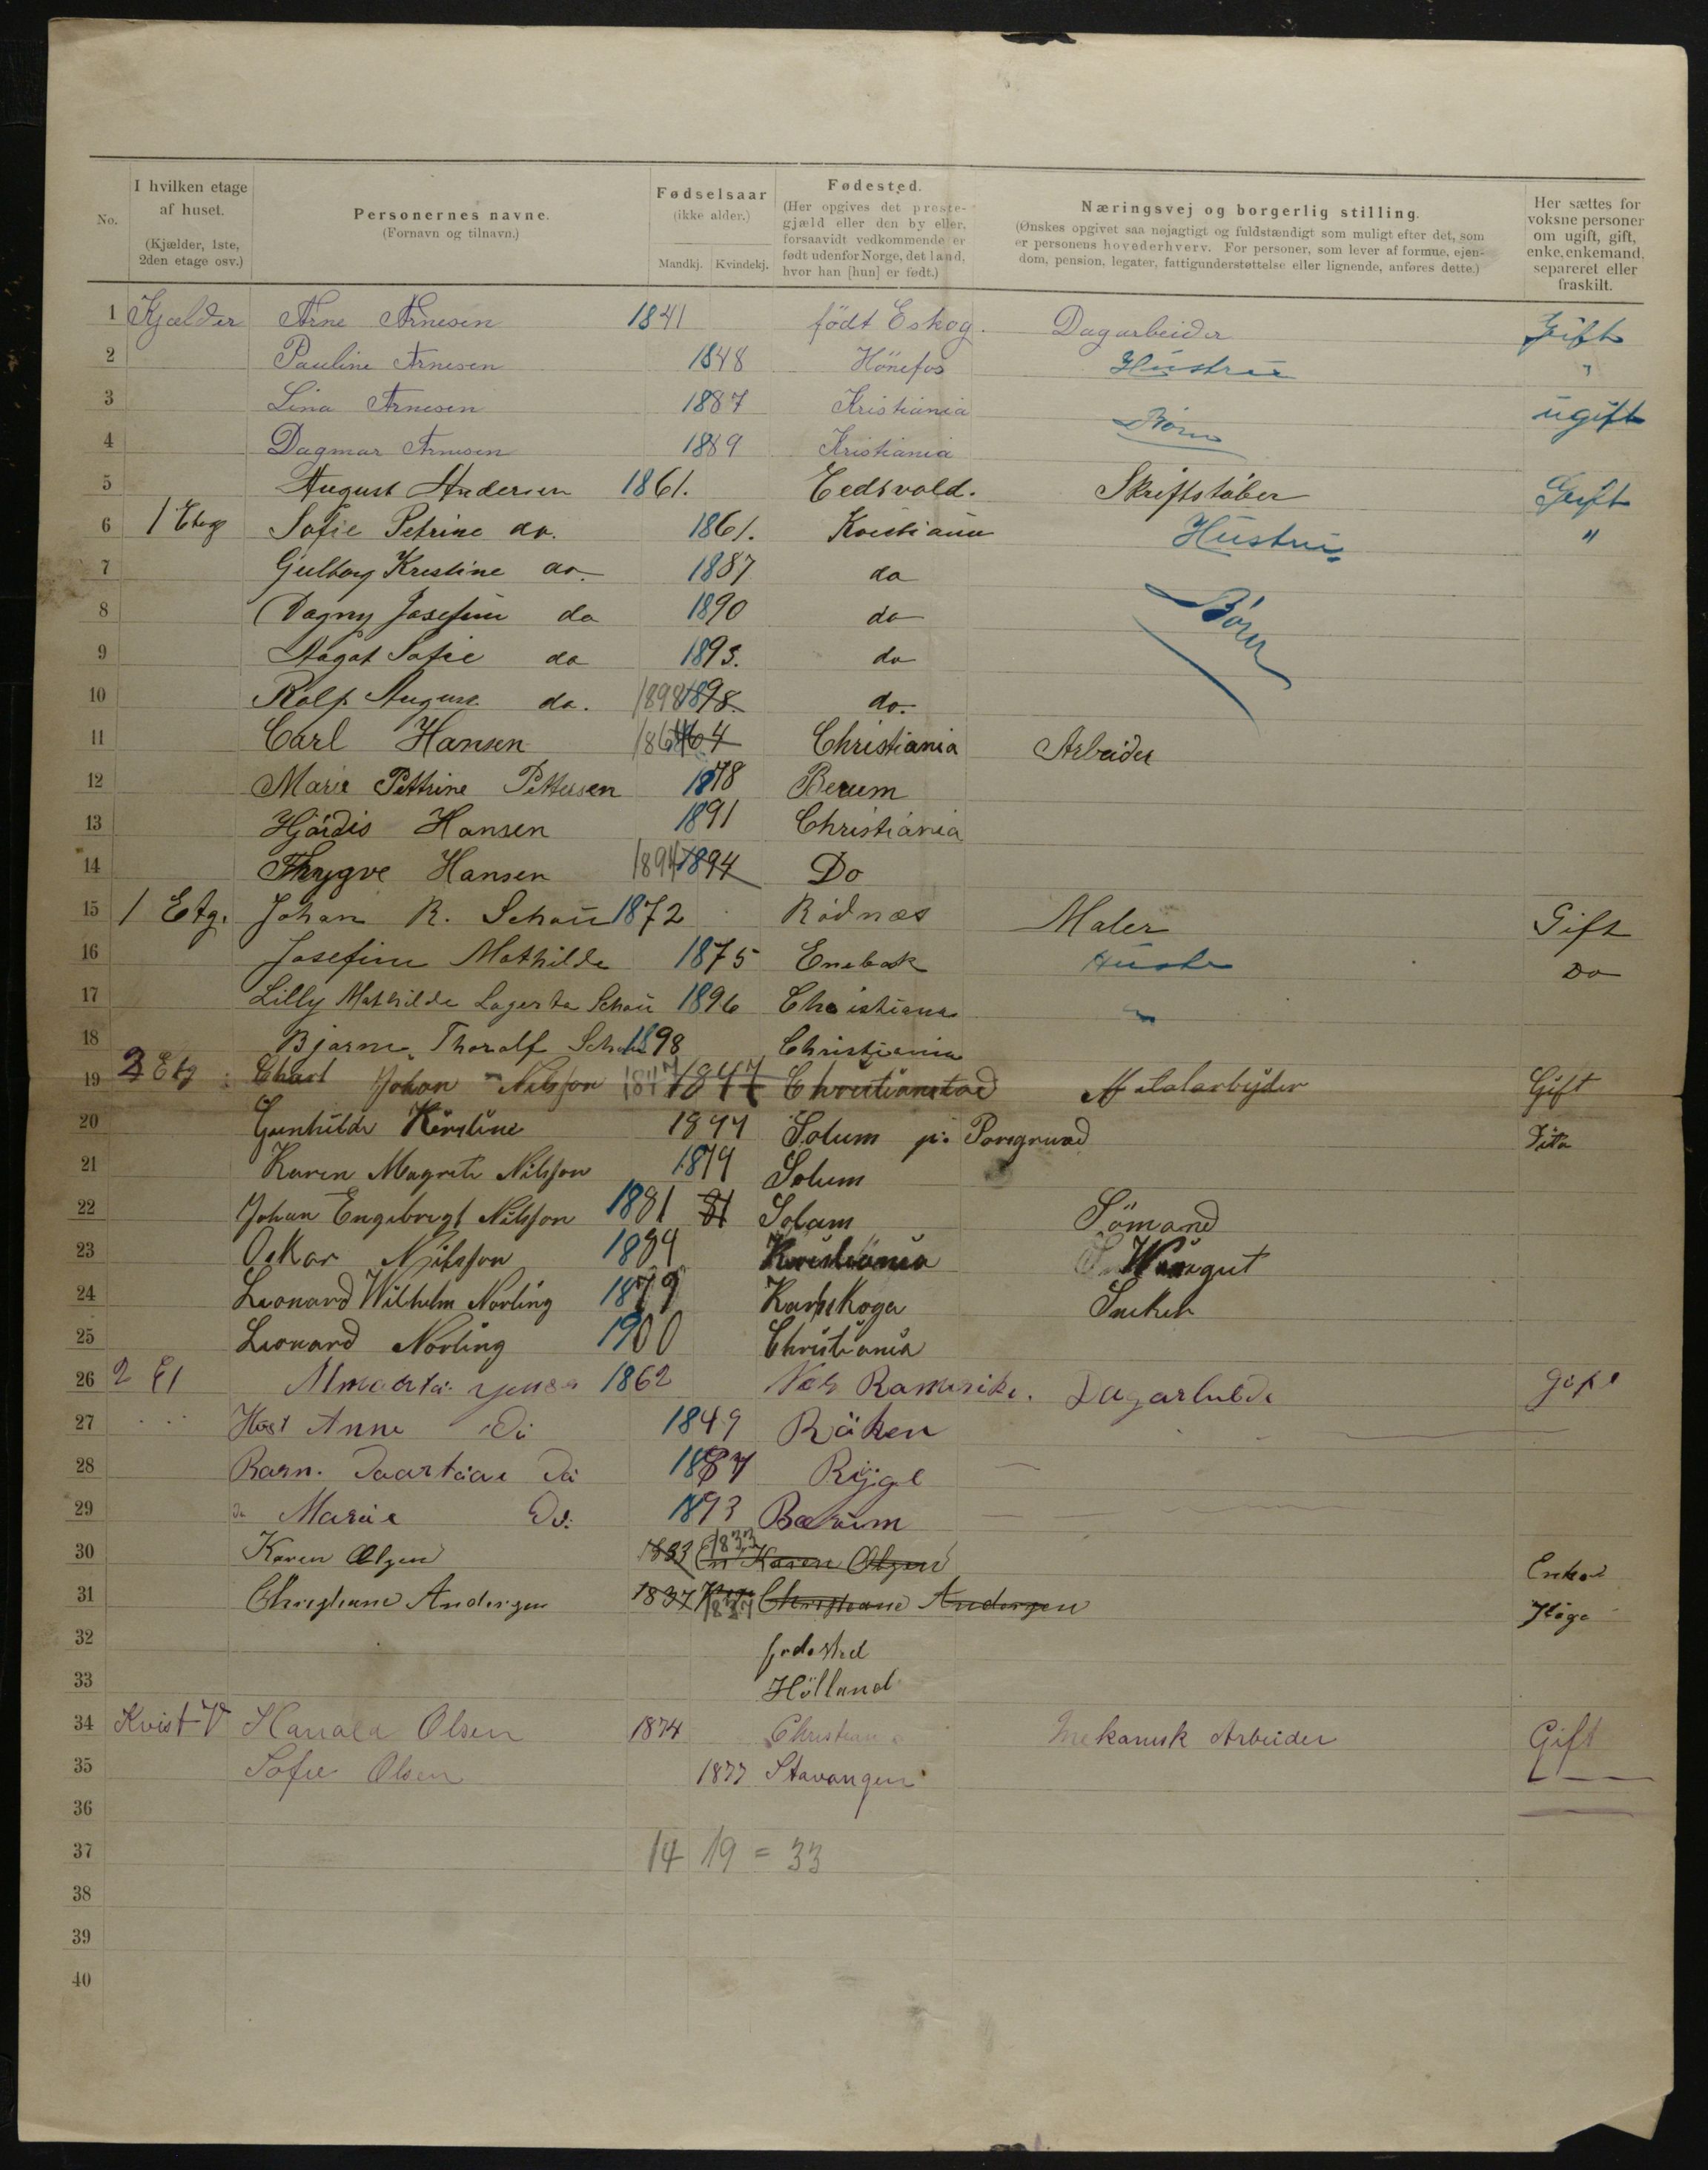 No.
I hvilken etage af huset. (Kjælder, 1ste, 2den etage osv.)
Personernes navne. (Fornavn og tilnavn.)
Fødselsaar (ikke alder.) Mandkj. Kvindekj.
Fødested. (Her opgives det prestegjæld eller den by eller, forsaavidt vedkommende er født udenfor Norge, det land, hvor han [hun] er født.)
Næringsvej og borgerlig stilling. (Ønskes opgivet saa nøjagtigt og fuldstændigt som muligt efter det, som er personens hovederhverv. For personer, som lever af formue, ejendom, pension, legater, fattigunderstøttelse eller lignende, anføres dette.)
Her sættes for voksne personer om ugift, gift, enke, enkemand, separeret eller fraskilt.
1 Kjælder Arne Arnesen 1841 födt Eskog. Dagarbeider Gift
2 Pauline Arnesen 1848 Hönefos Hustru "
3 Lina Arnesen 1887 Kristiania Børn ugift
4 Dagmar Arnesen 1889 Kristiania
5 August Andersen 1861. Eedsvold. Skriftstøber Gift
6 1 Etag Sofie Petrine do. 1861. Kristiania Hustru "
7 Gulborg Kristine do. 1887 do
8 Dagny Josefine do 1890 do Børn
9 Aagot Sofie do 1893. do
10 Rolf August do. 1898 1898. do.
11 Carl Hansen 1864 64 Christiania Arbeider
12 Marie Pettrine Pettersen 1878 Berum
13 Hjórdis Hansen 1891 Christiania
14 Thrygve Hansen 1894 1894 Do
15 1 Etg. Johan R. Schau 1872 Rødnæs Maler Gift
16 Josefine Mathilde 1875 Enebak Hustr Do
17 Lilly Mathilde Lagerta Schau 1896 Christiana
18 Bjarne Thoralf Schau 1898 Christiania
19 2 Etg Johan Nilsson 1847 1847 Christianstad Metalarbyder Gift
20 Gunhilde Kirstine Solum pr Porsgrund Dito
21 Karen Magrete Nilsson 1879 Solum
22 Johan Engebregt Nilsson 1881 81 Solum Sömand
23 Oskar Nilsson Kristiania
24 Leonard Wilhelm Norling 1879 Karlskoga Sneker
25 Leonard Norling 1900 Christiania
26 2 Et 1862 Nes Ramerike. Dagarbeide gift
27 Hust Anne Do 1849 Röken
28 Barn. Do 1887 Rygge
29 Do Marie Do. 1893 Bærum
30 Karen Olsen 1833 1833 Karen Olsen Enke
31 Christiane Andersen 1837 1837 Christiane Andersen
32 fødested
33 Hölland
34 Kvist V Olsen 1874 Christiania Mekanisk Arbeider Gift
35 Sofie Olsen 1877 Stavanger
36
37 14 19 = 33
38
39
40